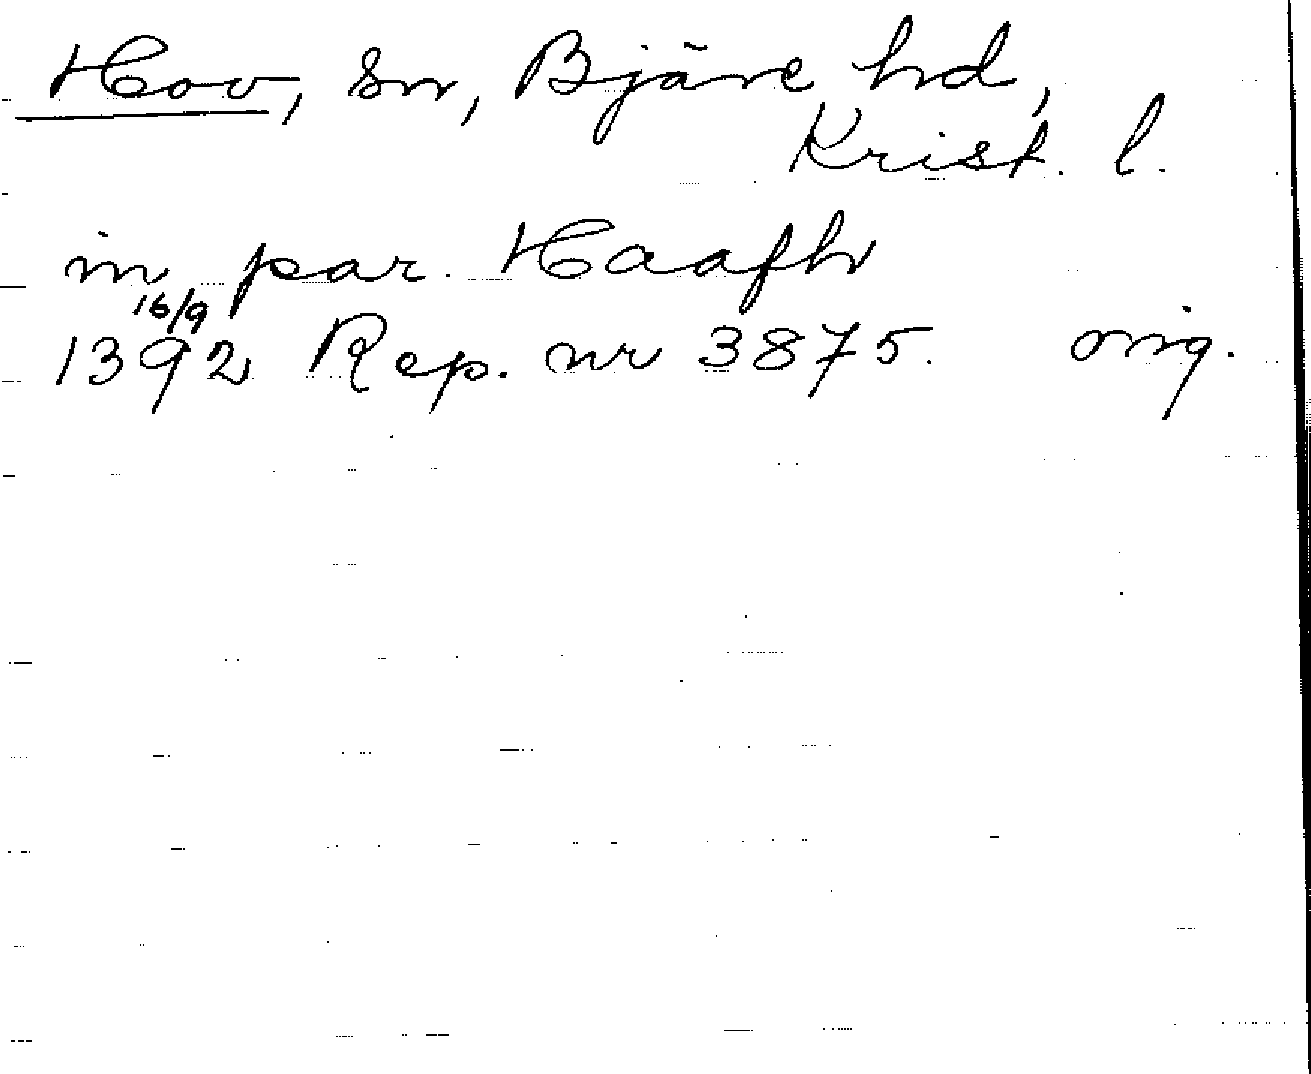 Hov, sn, Bjäre hd,
Krist. l.
in par. Haafh
16/9
1392 Rep. nr 3875. orig.